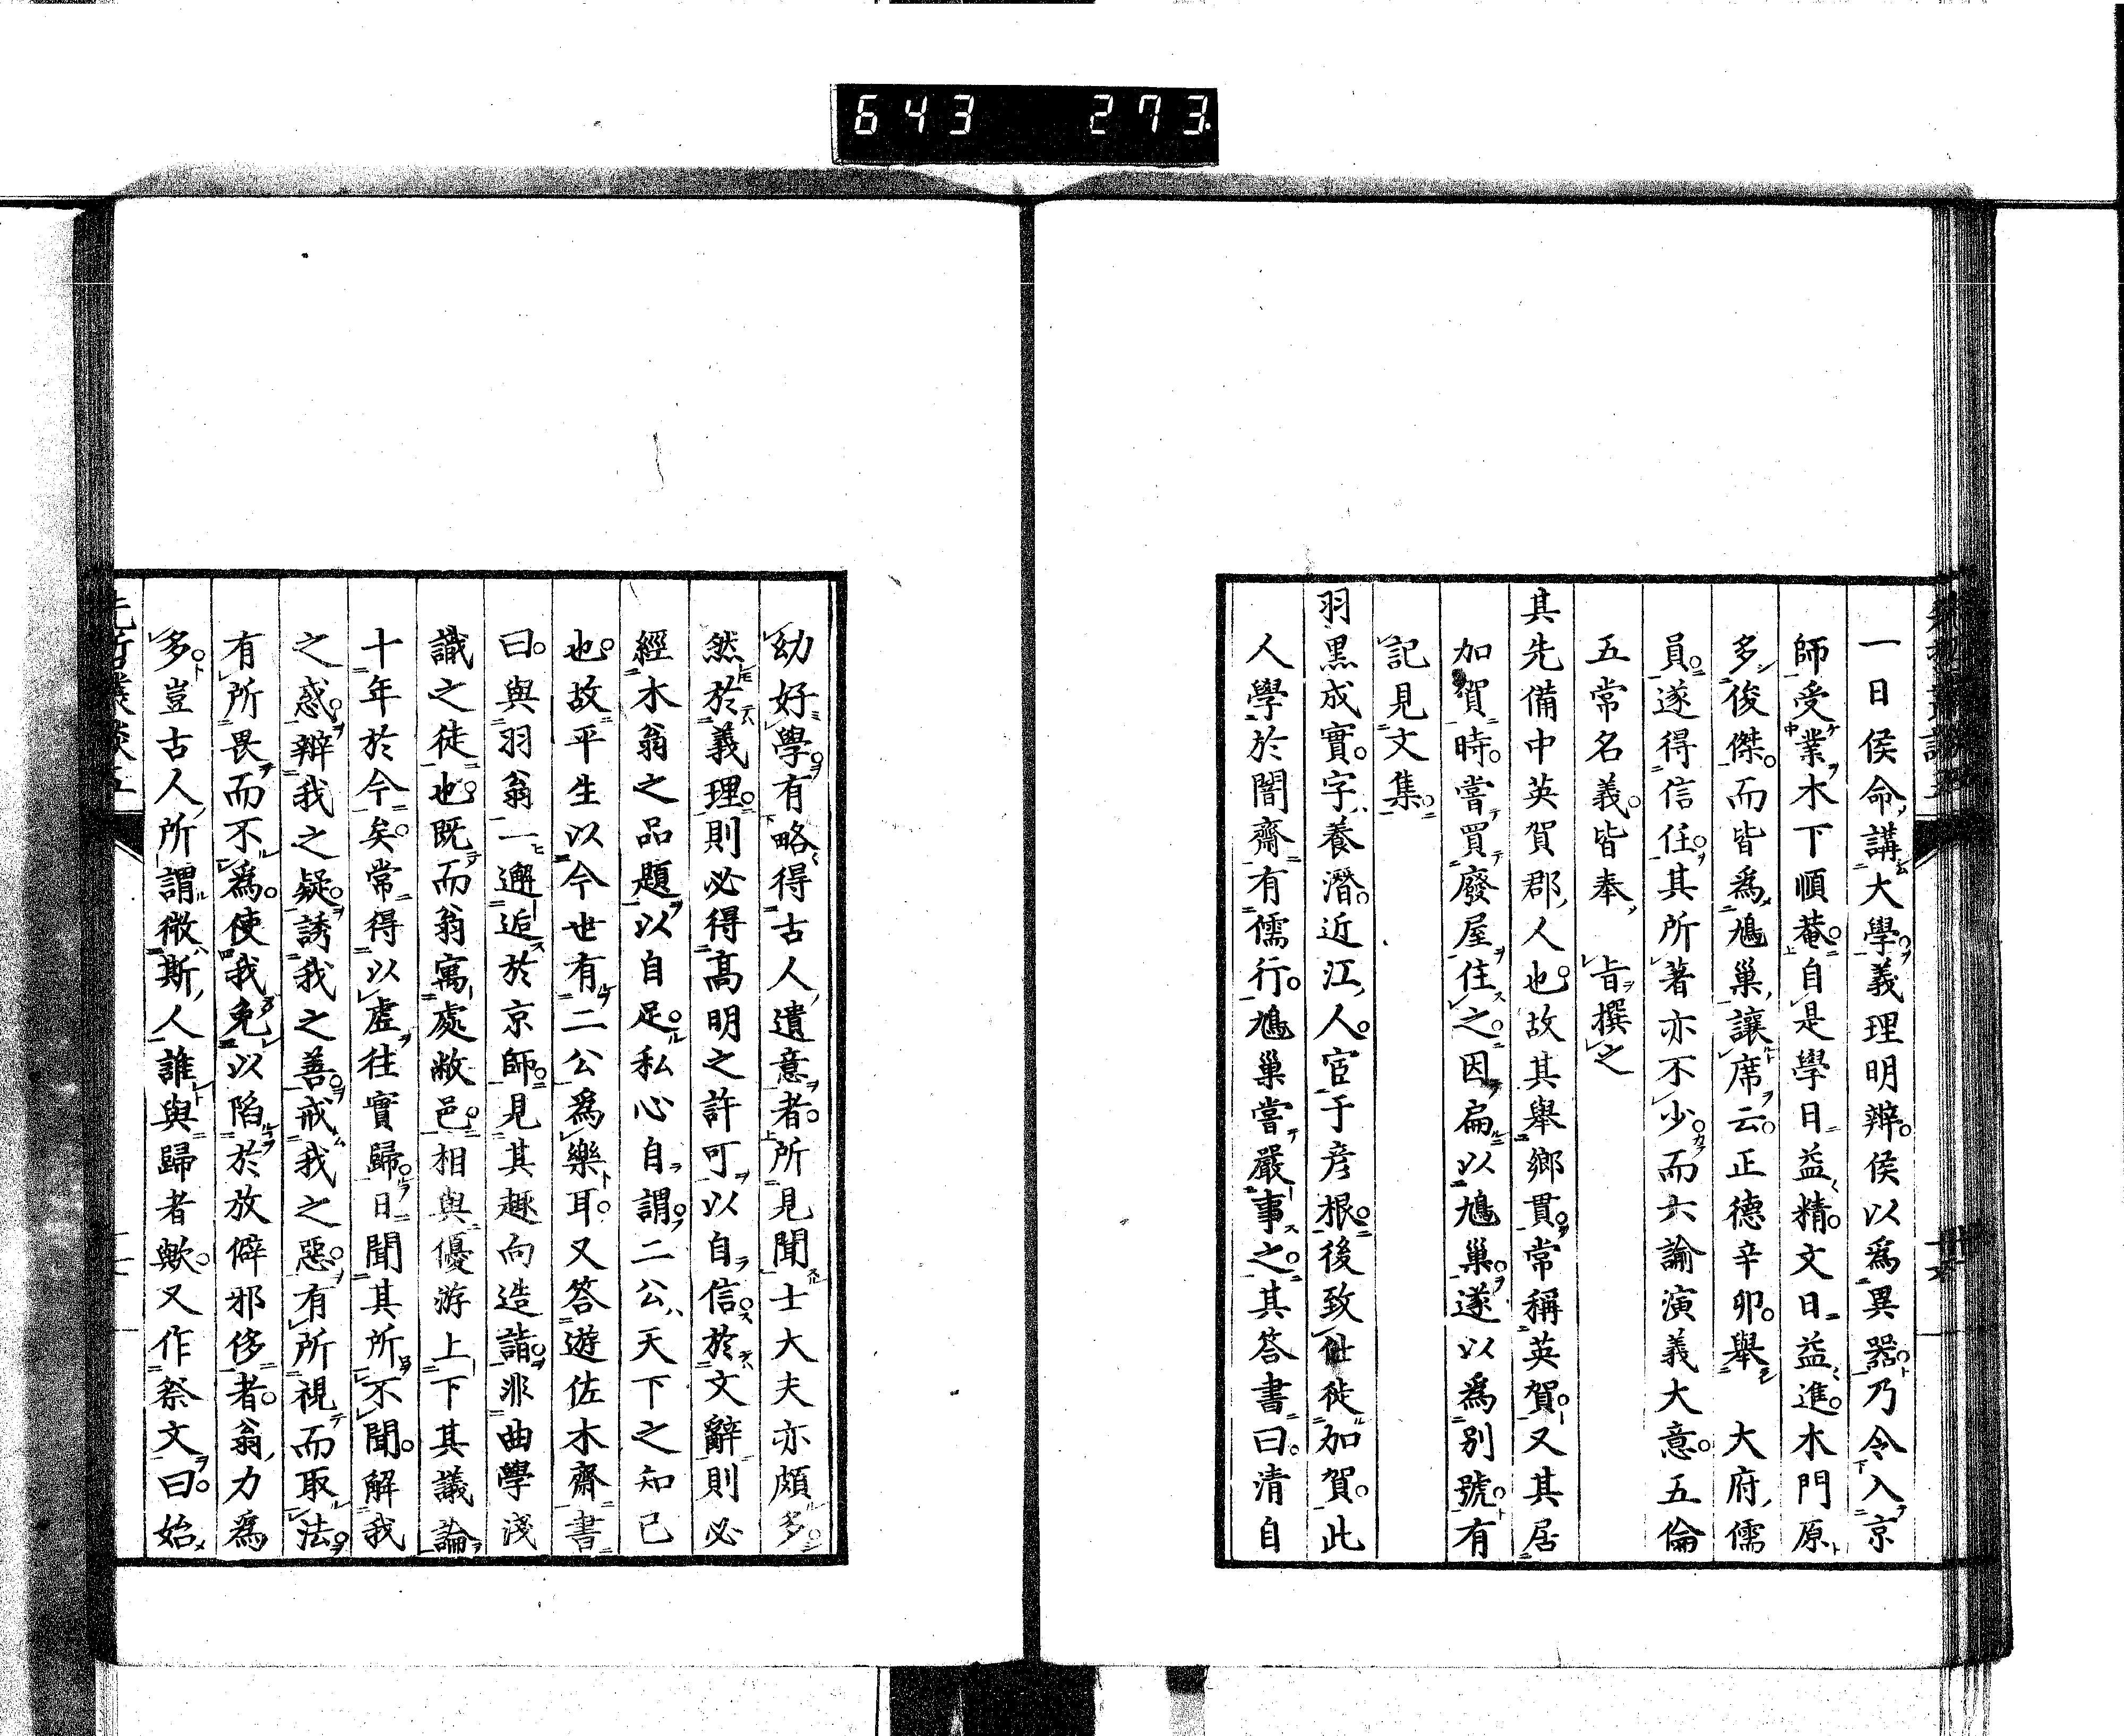 643 273
一日侯命講大學義理明辨侯以爲異器乃令入京
師受業木下順菴自是學日益精文日益進木門原
多俊傑而皆爲鳩巢讓席云正德辛卯擧 大府儒
員遂得信任其所著亦不少而六諭演義大意五倫
五常名義皆奉 旨撰之
其先備中英賀郡人也故其擧鄉貫常稱英賀又其居
加賀時嘗買廢屋住之因扁以鳩巢遂以爲別號有
記見文集
羽黑成實字養潛近江人宦于彥根後致仕徙加賀此
人學於闇齋有儒行鳩巢嘗嚴事之其答書曰清自
幼好學有略得古人遺意者所見聞士大夫亦頗多
然於義理則必得高明之許可以自信於文辭則必
經木翁之品題以自足私心自謂二公天下之知已
也故平生以今世有二公爲樂耳又答遊佐木齋書
曰與羽翁一邂逅於京師見其趣向造詣非曲學淺
識之徒也既而翁寓處敝邑相與優游上下其議論
十年於今矣常得以虛往實歸日聞其所不聞解我
之惑辯我之疑誘我之善戒我之惡有所視而取法
有所畏而不爲使我免以陷於放僻邪侈者翁力爲
多豈古人所謂微斯人誰與歸者歟又作祭文曰始